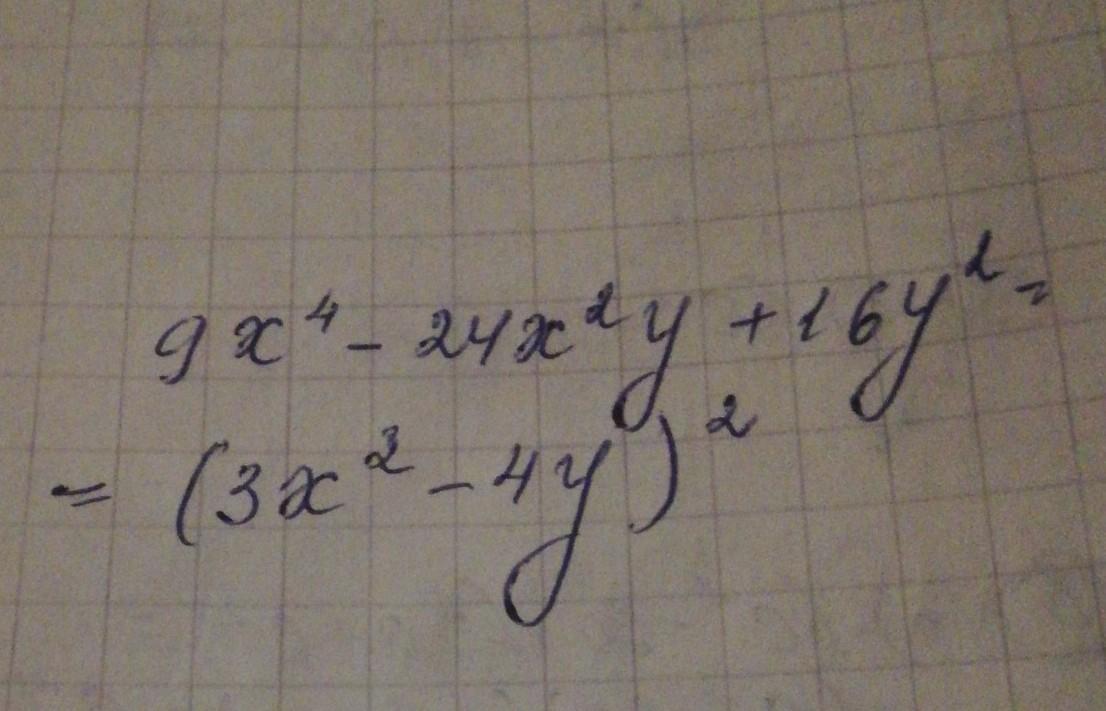 9x⁴ - 24x²y + 16y² =
= (3x² - 4y)²